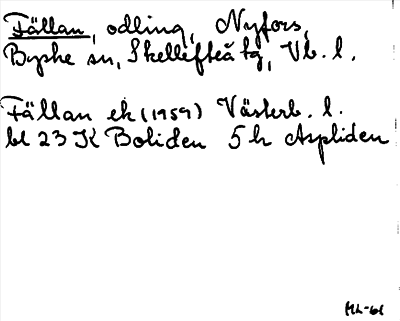 Fällan, odling, Nyfors,
Byske sn, Skellefteå tg, Vb. l.
Fällan ek (1959) Västerb. l.
bl 23 K Boliden 5 h Aspliden
ML-61